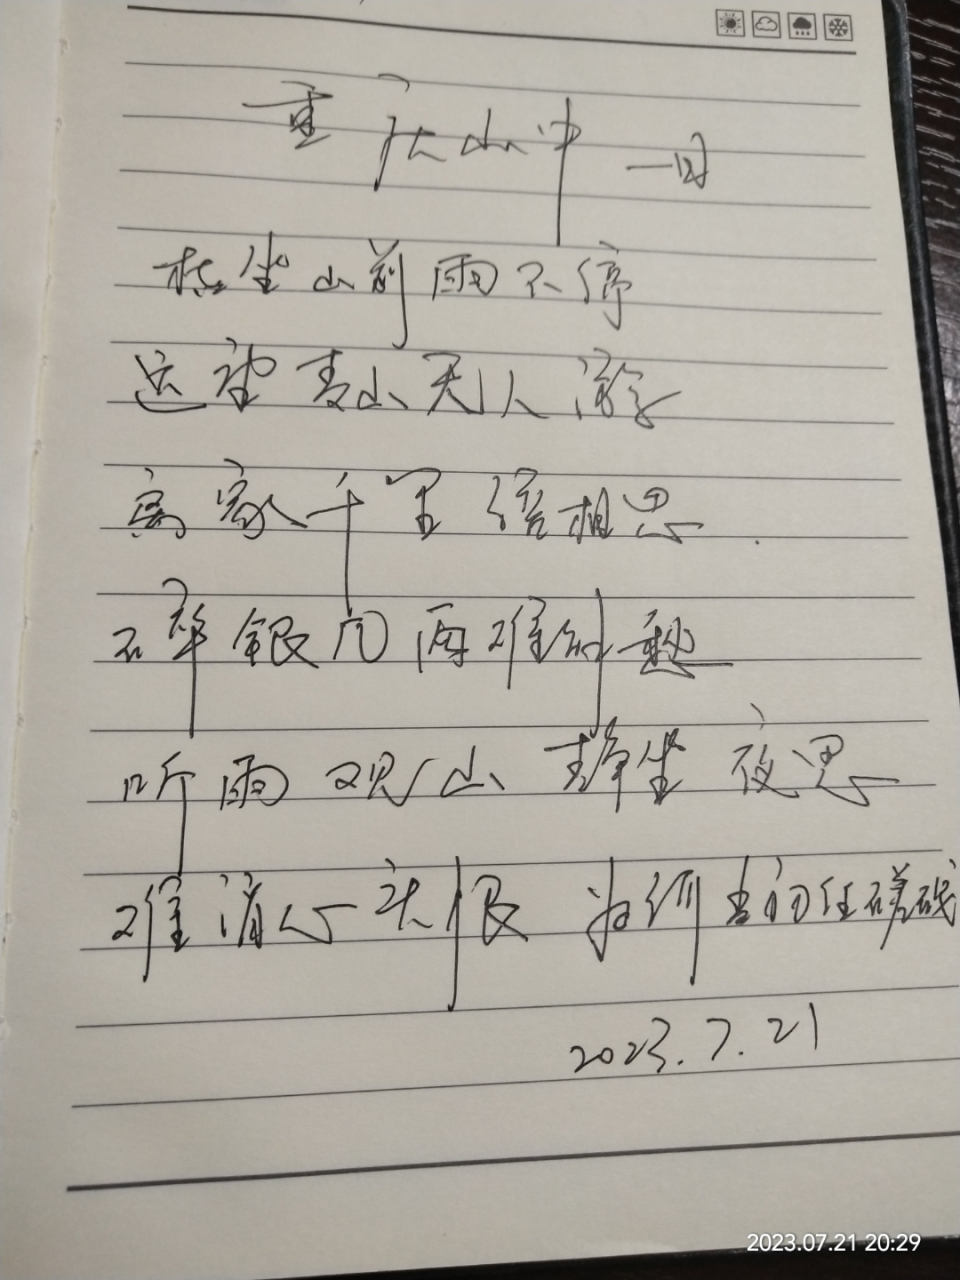 重庆山中一日
枯坐山前雨不停
远望青山无人游
离家千里倍相思
不举银 两难
听雨观山 静坐夜思
难消心头恨 为何当初任蹉跎
2023.7.21
2023.07.21 20:29